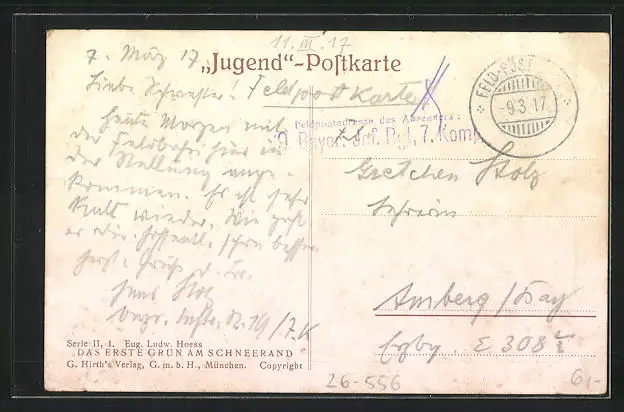 11. III. 17
„Jugend“-Postkarte
7. März 17.
Liebe Schwester!
Feldpostkarte
FELD-POST
-9.3.17
Feldpostadresse des Absenders:
Bayer. Inf. Rgt, 7. Komp.
Heute Morgen mit
der Feldbahn hier in
der Stellung ange-
kommen. Es ist sehr
kalt wieder. Wie geht
es Dir. Hoffentl. schon besser.
Herzl. Grüße
Hans Stolz
19/7.K
Gretchen Stolz
Amberg/Bay
E 308
Serie II, 1. Eug. Ludw. Hoess
DAS ERSTE GRÜN AM SCHNEERAND
G. Hirth's Verlag, G. m. b. H., München. Copyright
26-556
6,-